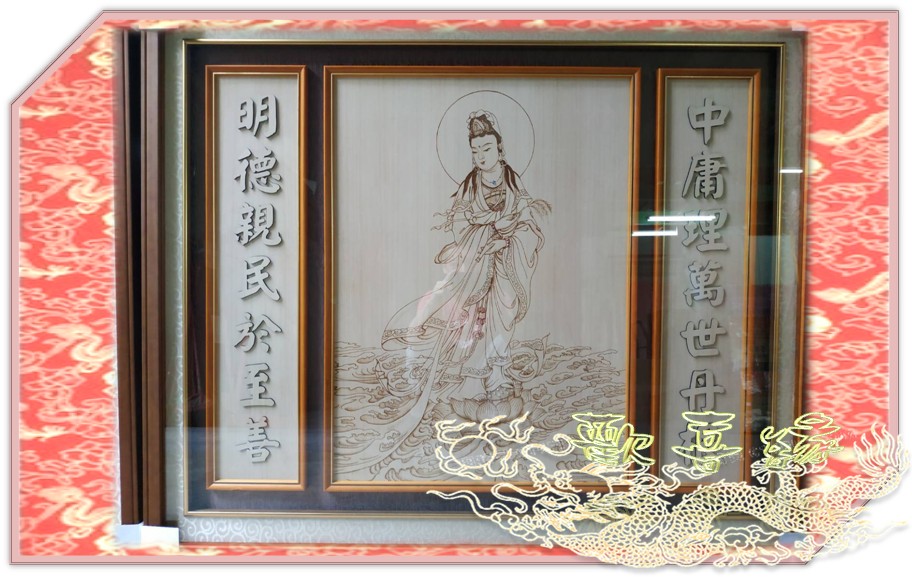 中庸理萬世丹
明德親民於至善
歡喜緣